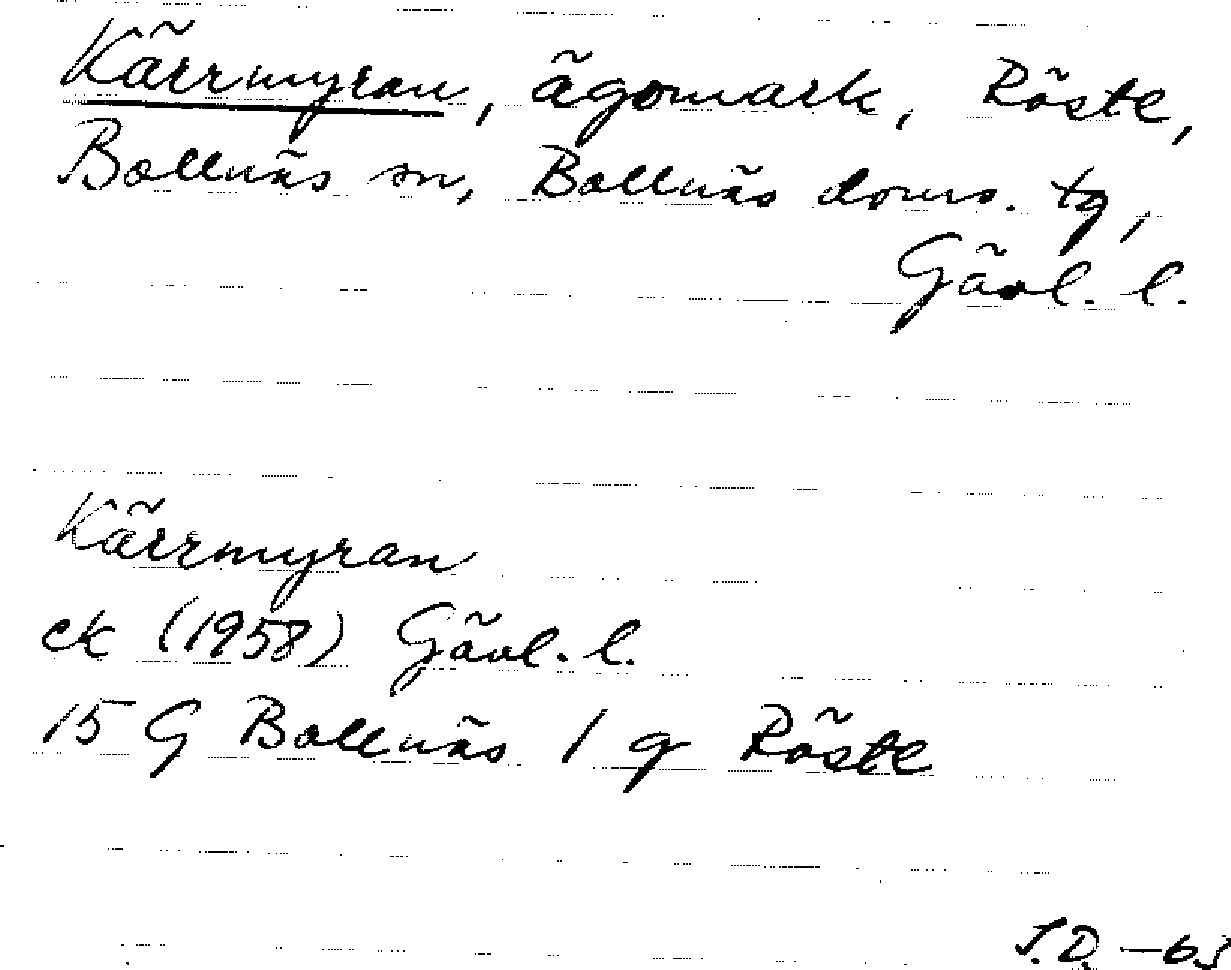 Kärrmyran, ägomark, Röste,
Bollnäs sn, Bollnäs doms. tg,
Gävl. l.
Kärrmyran
ek (1958) Gävl. l.
15 G Bollnäs 1 g Röste
S.D. -63